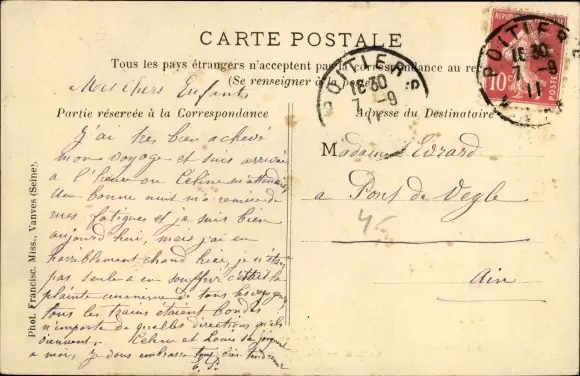 CARTE POSTALE
Tous les pays étrangers n'acceptent pas la correspondance au re
(Se renseigner à la poste)
Mes chers Enfants
Partie réservée à la Correspondance
Adresse du Destinataire
J'ai très bien achevé
mon voyage et suis arrivée
a l'heure ou Céline m'attendait
Une bonne nuit m'a remise de
mes fatigues et je suis bien
aujourd'hui, mais j'ai eu
horriblement chaud hier, je n'étais
pas seule a en souffrir c'était la
plainte unanime de tous les voyag
tous les trains étaient bondés
n'importe de quelles directions qu'ils
viennent. Céline et Louis se joignent
a moi, je vous embrasse tous bien tendrement
Madame Evrard
a Pont de Veyle
4-
Ain
Phot. Francisc. Miss., Vanves (Seine).
POITIERS
18 30
7 - 9
11
POITIERS
18 30
7 - 9
11
10c
POSTES